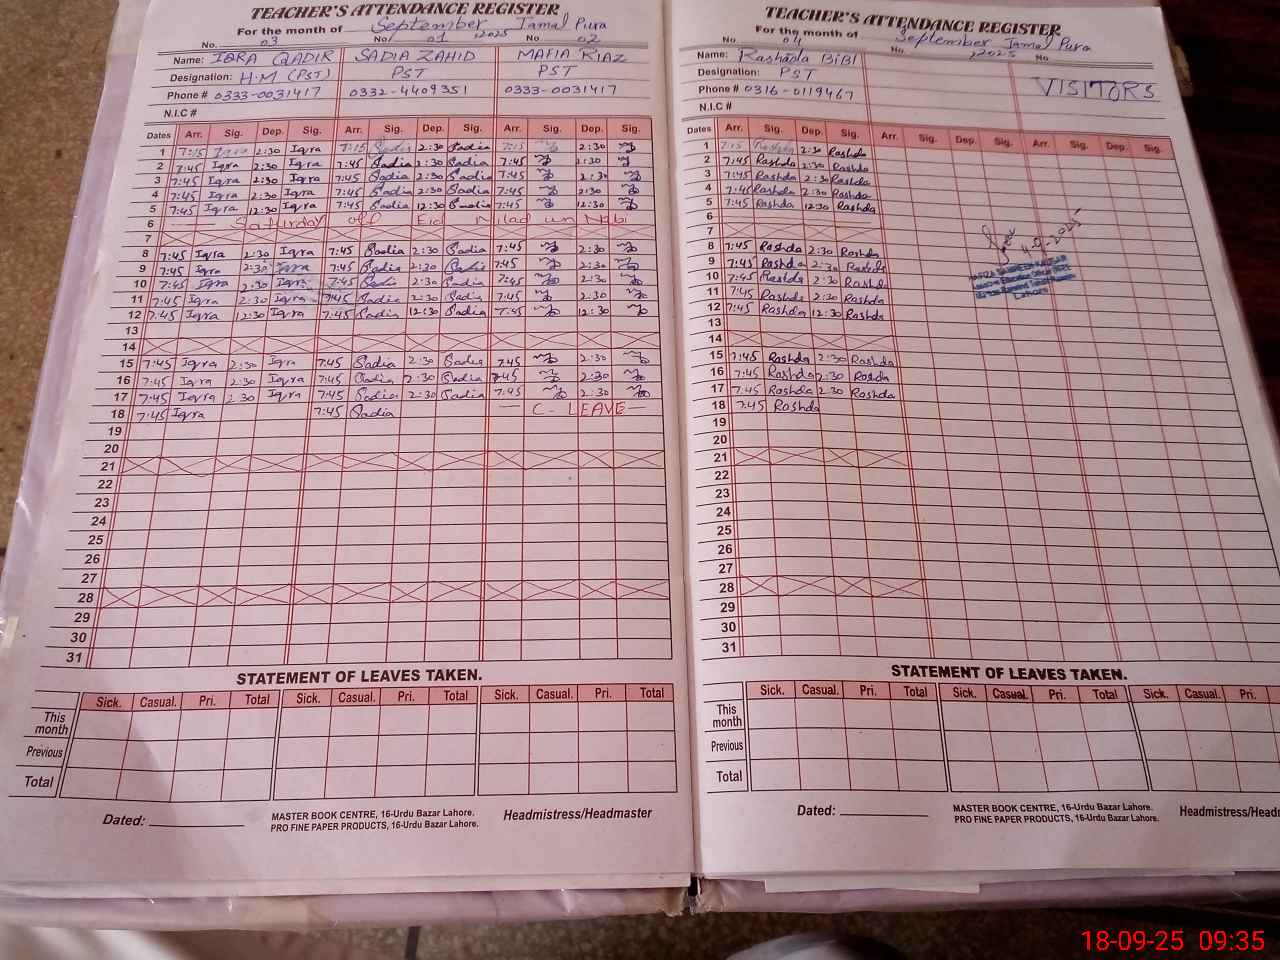 TEACHER'S ATTENDANCE REGISTER
For the month of September 2025 Jamal Pura
No. 03 No. 01 No. 02
Name: IQRA QADIR SADIA ZAHID MAFIA RIAZ
Designation: H.M (PST) PST PST
Phone # 0333-0031417 0332-4409351 0333-0031417
N.I.C #
Dates Arr. Sig. Dep. Sig. Arr. Sig. Dep. Sig. Arr. Sig. Dep. Sig.
1 7:15 Iqra 2:30 Iqra 7:15 Sadia 2:30 Sadia 7:15 2:30
2 7:45 Iqra 2:30 Iqra 7:45 Sadia 2:30 Sadia 7:45 2:30
3 7:45 Iqra 2:30 Iqra 7:45 Sadia 2:30 Sadia 7:45 2:30
4 7:45 Iqra 2:30 Iqra 7:45 Sadia 2:30 Sadia 7:45 2:30
5 7:45 Iqra 12:30 Iqra 7:45 Sadia 12:30 Sadia 7:45 12:30
6 Saturday off Eid Milad un Nabi
7
8 7:45 Iqra 2:30 Iqra 7:45 Sadia 2:30 Sadia 7:45 2:30
9 7:45 Iqra 2:30 Iqra 7:45 Sadia 2:30 Sadia 7:45 2:30
10 7:45 Iqra 2:30 Iqra 7:45 Sadia 2:30 Sadia 7:45 2:30
11 7:45 Iqra 2:30 Iqra 7:45 Sadia 2:30 Sadia 7:45 2:30
12 7:45 Iqra 12:30 Iqra 7:45 Sadia 12:30 Sadia 7:45 12:30
13
14
15 7:45 Iqra 2:30 Iqra 7:45 Sadia 2:30 Sadia 7:45 2:30
16 7:45 Iqra 2:30 Iqra 7:45 Sadia 2:30 Sadia 7:45 2:30
17 7:45 Iqra 2:30 Iqra 7:45 Sadia 2:30 Sadia 7:45 2:30
18 7:45 Iqra 7:45 Sadia — C. LEAVE —
19
20
21
22
23
24
25
26
27
28
29
30
31
STATEMENT OF LEAVES TAKEN.
Sick. Casual. Pri. Total Sick. Casual. Pri. Total Sick. Casual. Pri. Total
This month
Previous
Total
Dated: MASTER BOOK CENTRE, 16-Urdu Bazar Lahore. Headmistress/Headmaster
PRO FINE PAPER PRODUCTS, 16-Urdu Bazar Lahore.
TEACHER'S ATTENDANCE REGISTER
For the month of September 2025 Jamal Pura
No. 04 No. No
Name: Rashada BiBI
Designation: PST
VISITORS
Phone # 0316-0119467
N.I.C #
Dates Arr. Sig. Dep. Sig. Arr. Sig. Dep. Sig. Arr. Sig. Dep. Sig.
1 7:15 Rashda 2:30 Rashda
2 7:45 Rashda 2:30 Rashda
3 7:45 Rashda 2:30 Rashda
4 7:45 Rashda 2:30 Rashda
5 7:45 Rashda 12:30 Rashda
6
7
8 7:45 Rashda 2:30 Rashda
9 7:45 Rashda 2:30 Rashda
10 7:45 Rashda 2:30 Rashda
11 7:45 Rashda 2:30 Rashda
12 7:45 Rashda 12:30 Rashda
13
14
15 7:45 Rashda 2:30 Rashda
16 7:45 Rashda 2:30 Rashda
17 7:45 Rashda 2:30 Rashda
18 7:45 Rashda
19
20
21
22
23
24
25
26
27
28
29
30
31
Lahore
STATEMENT OF LEAVES TAKEN.
Sick. Casual. Pri. Total Sick. Casual. Pri. Total Sick. Casual. Pri.
This month
Previous
Total
Dated: MASTER BOOK CENTRE, 16-Urdu Bazar Lahore. Headmistress/Headm
PRO FINE PAPER PRODUCTS, 16-Urdu Bazar Lahore.
18-09-25 09:35